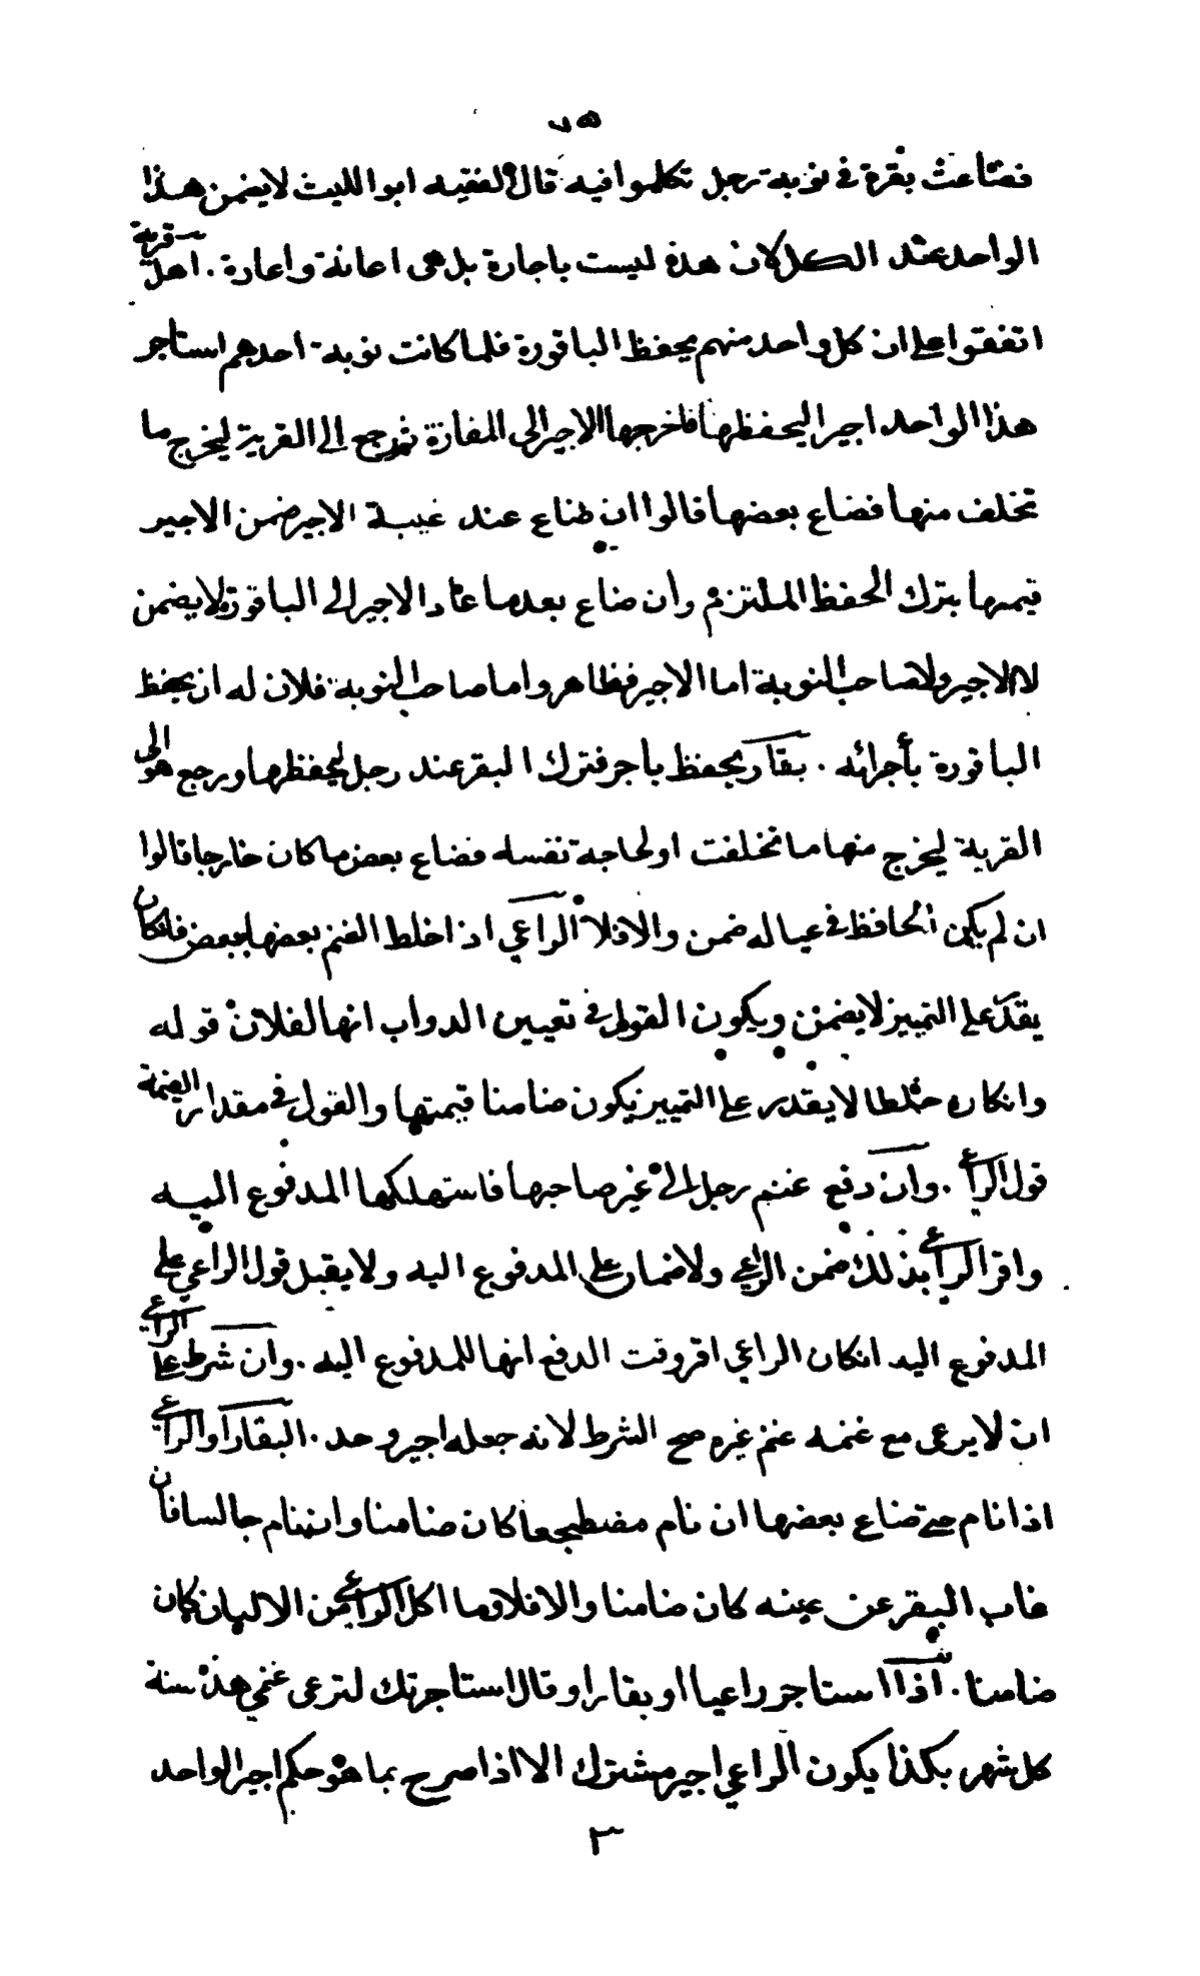 فضاعت بقرة في نوبة رجل تكلموا فيه قال الفقيه ابوالليث لا يضمن هذا
الواحد عند الكل لان هذه ليست باجارة بل هى اعانة واعارة . اهل قرية
اتفقوا على ان كل واحد منهم يحفظ الباقورة فلما كانت نوبة احدهم استاجر
هذا الواحد اجيرا ليحفظها فاخرجها الاجير الى المفازة ثم رجع الى القرية ليخرج ما
تخلف منها فضاع بعضها قالوا ان ضاع عند غيبة الاجير ضمن الاجير
قيمتها بترك الحفظ الملتزم وان ضاع بعدما عاد الاجير الى الباقورة لا يضمن
لا الاجير ولا صاحب النوبة اما الاجير فظاهر واما صاحب النوبة فلان له ان يحفظ
الباقورة بأجرائه . بقار يحفظ باجر فترك البقر عند رجل ليحفظها ورجع هو الى
القرية ليخرج منها ما تخلفت او لحاجة نفسه فضاع بعض ما كان خارجا قالوا
ان لم يكن الحافظ في عياله ضمن والا فلا الراعي اذا خلط الغنم بعضها ببعض فان كان
يقدر على التمييز لا يضمن ويكون القول في تعيين الدواب انها لفلان قوله
وانكان خلطا لا يقدر على التمييز يكون ضامنا قيمتها والقول في مقدار القيمة
قول الراعي . وان دفع غنم رجل الى غير صاحبها فاستهلكها المدفوع اليه
واقر الراعي بذلك ضمن الراعي ولا ضمان على المدفوع اليه ولا يقبل قول الراعي على
المدفوع اليه انكان الراعي اقر وقت الدفع انها للمدفوع اليه . وان شرط على الراعي
ان لا يرعى مع غنمه غنم غيره صح الشرط لانه جعله اجير وحد . البقار او الراعي
اذا نام حتى ضاع بعضها ان نام مضطجعا كان ضامنا وان نام جالسا فان
غاب البقر عن عينه كان ضامنا والا فلا وما اكل الراعي من الالبان كان
ضامنا . اذا استاجر راعيا او بقارا وقال استاجرتك لترعى غنمي هذه سنة
كل شهر بكذا يكون الراعي اجير مشترك الا اذا صرح بما هو حكم اجير الواحد
٣